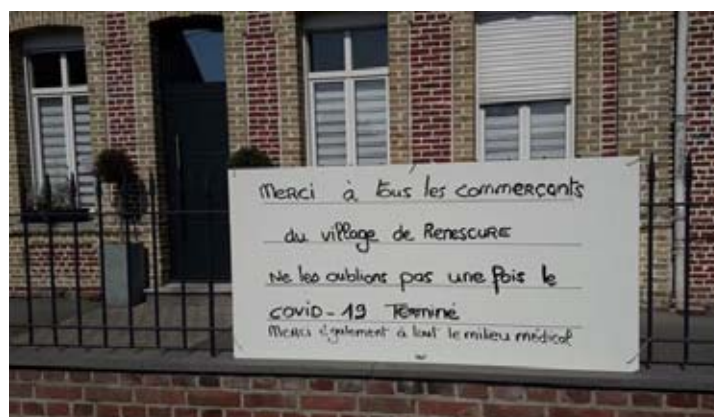 Merci à tous les commerçants
du village de Renescure
Ne les oublions pas une fois le
covid-19 Terminé
Merci également à tout le milieu médical